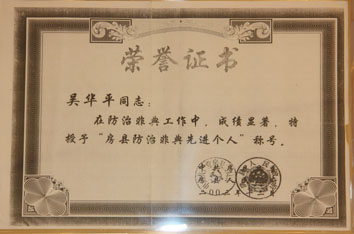 荣誉证书
吴华平同志：
在防治非典工作中，成绩显著，特
授予“房县防治非典先进个人”称号。